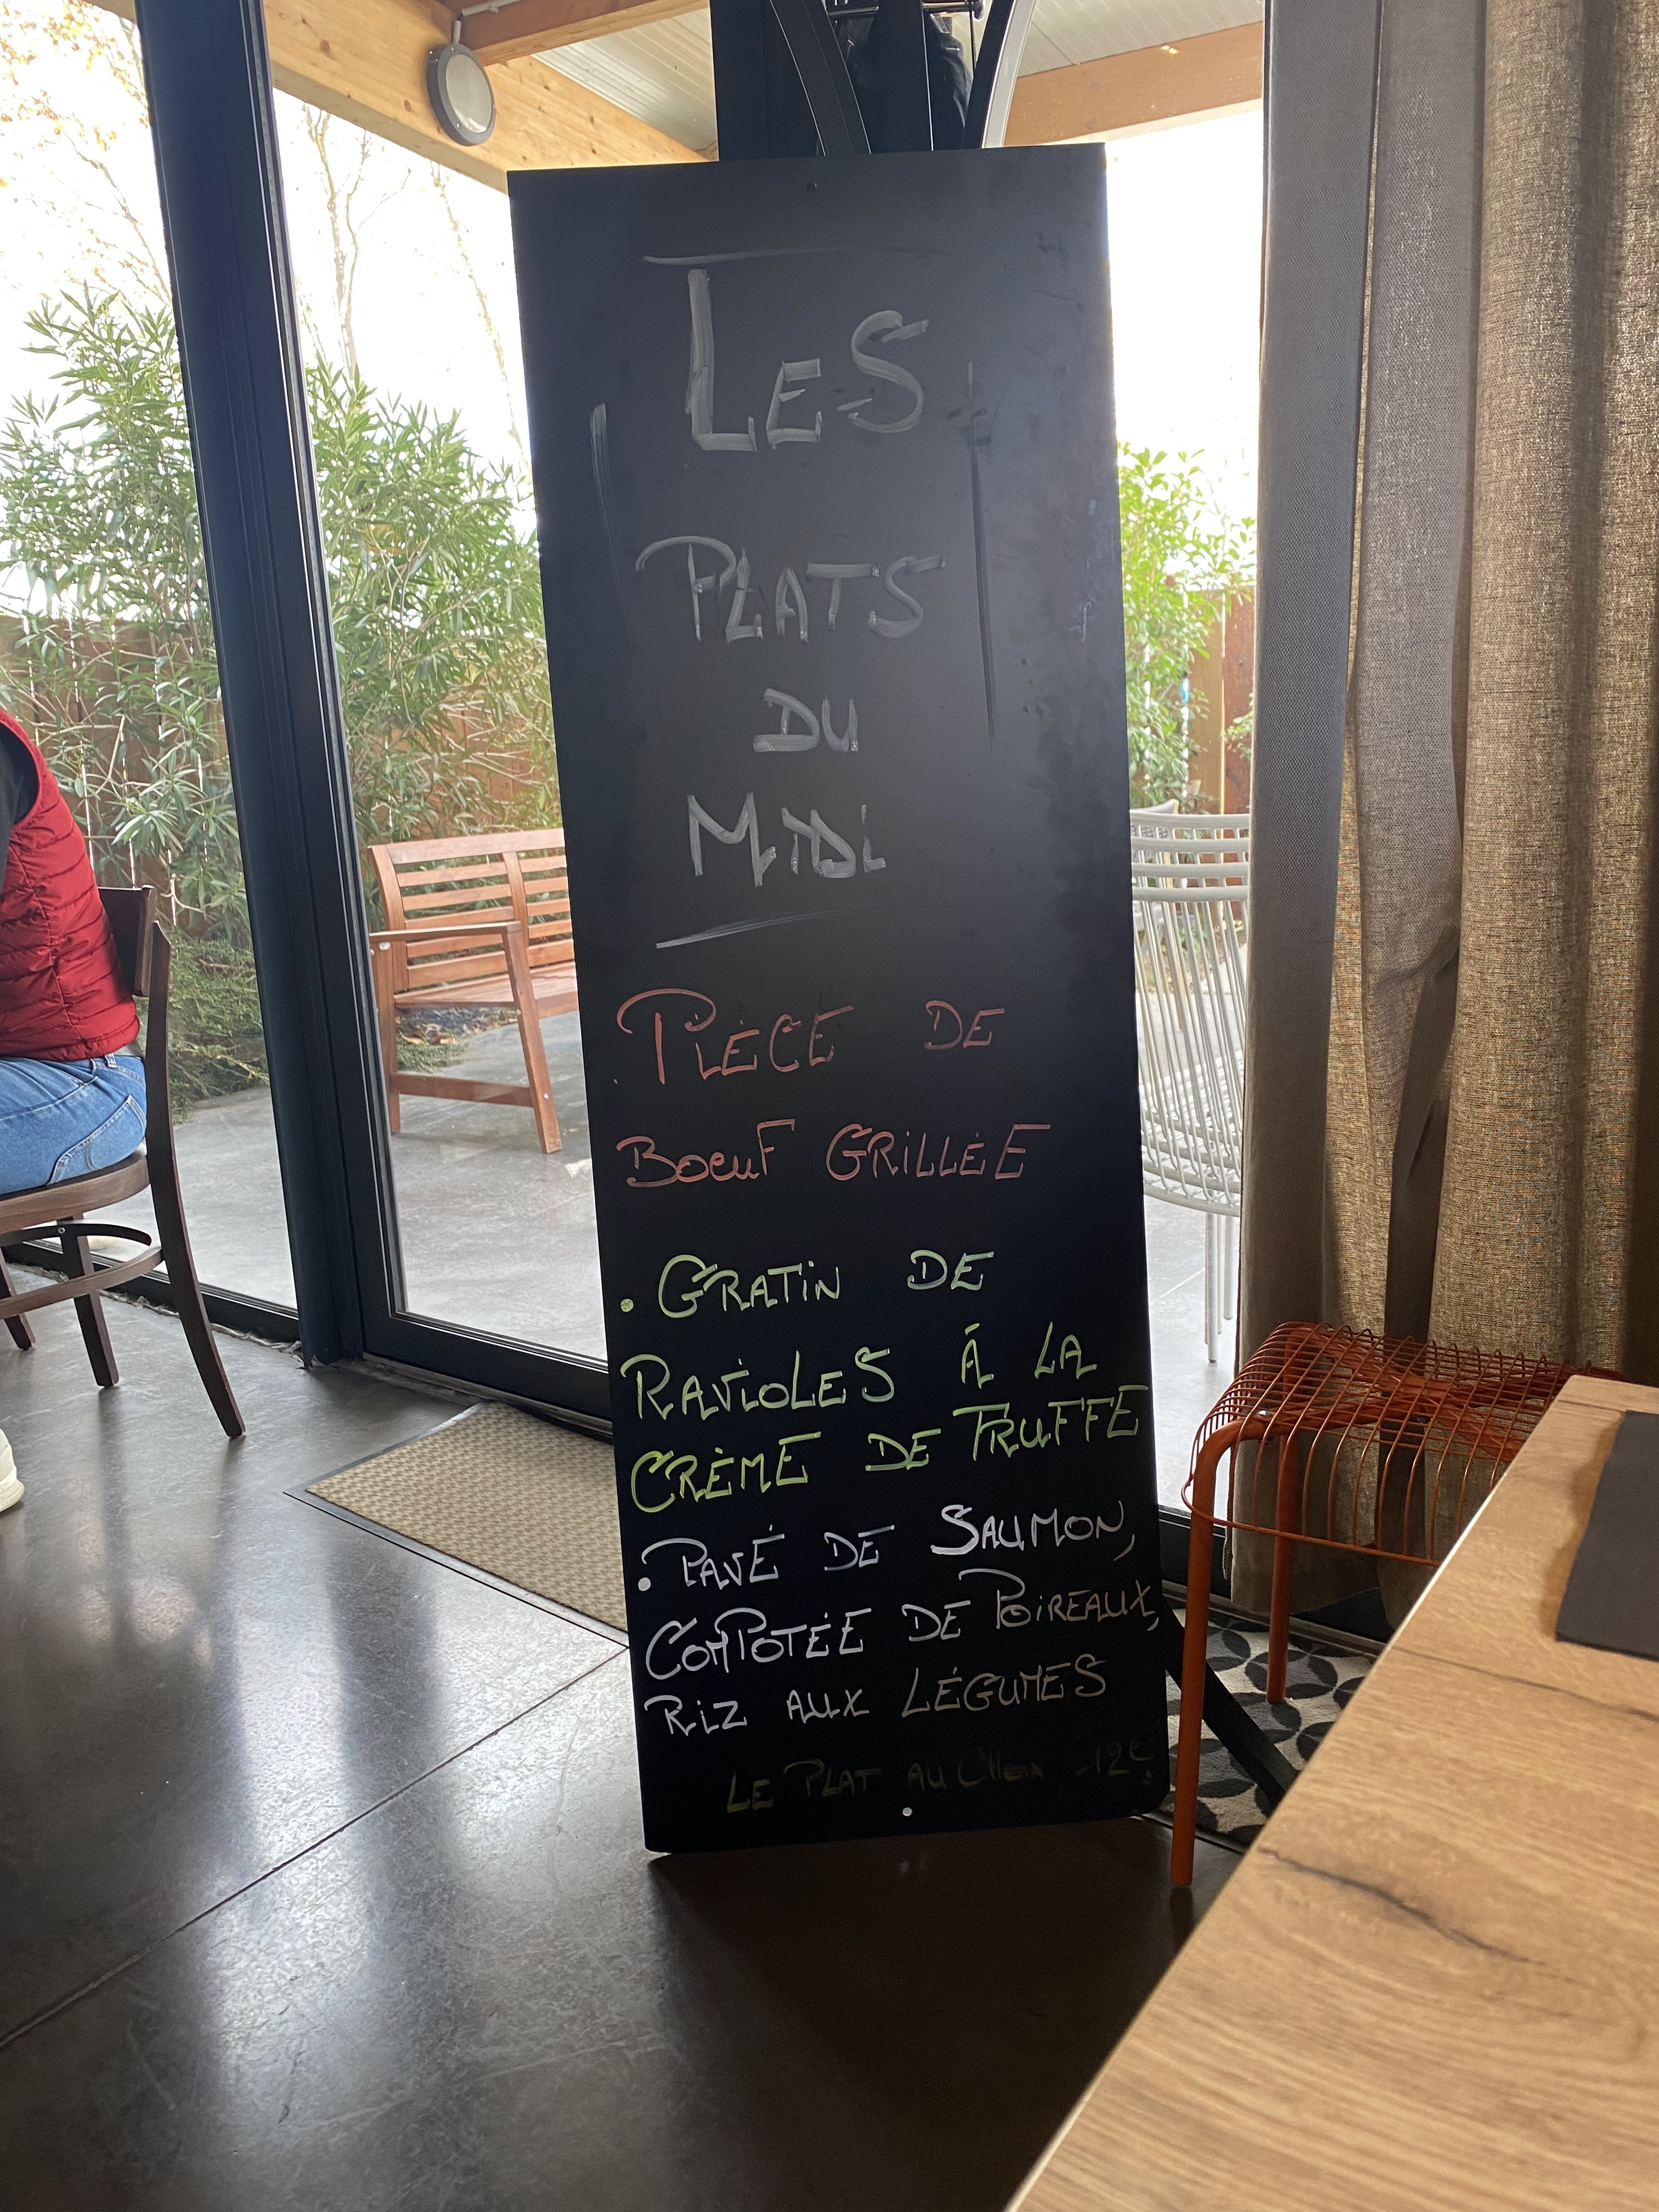 LES
PLATS
DU
MIDI
PIÈCE DE
BOEUF GRILLÉE
• GRATIN DE
RAVIOLES À LA
CRÈME DE TRUFFE
• PAVÉ DE SAUMON,
COMPOTÉE DE POIREAUX,
RIZ AUX LÉGUMES
LE PLAT AU CHOIX 12€